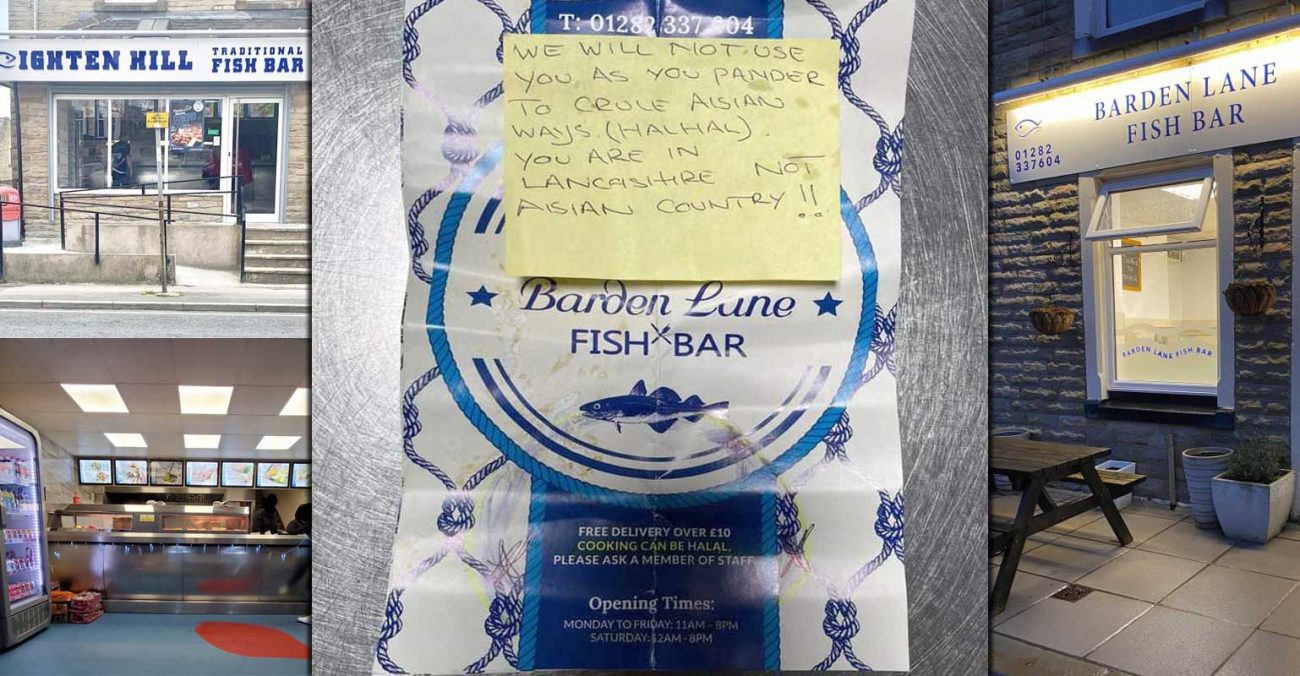 IGHTEN HILL
TRADITIONAL
FISH BAR
T: 01282 337 604
WE WILL NOT USE
YOU AS YOU PANDER
TO CRULE AISIAN
WAYS. (HALHAL).
YOU ARE IN
LANCASHIRE NOT
AISIAN COUNTRY !!
Barden Lane
FISH BAR
FREE DELIVERY OVER £10
COOKING CAN BE HALAL,
PLEASE ASK A MEMBER OF STAFF
Opening Times:
MONDAY TO FRIDAY: 11AM - 8PM
SATURDAY: 12AM - 8PM
BARDEN LANE
FISH BAR
01282
337604
BARDEN LANE FISH BAR